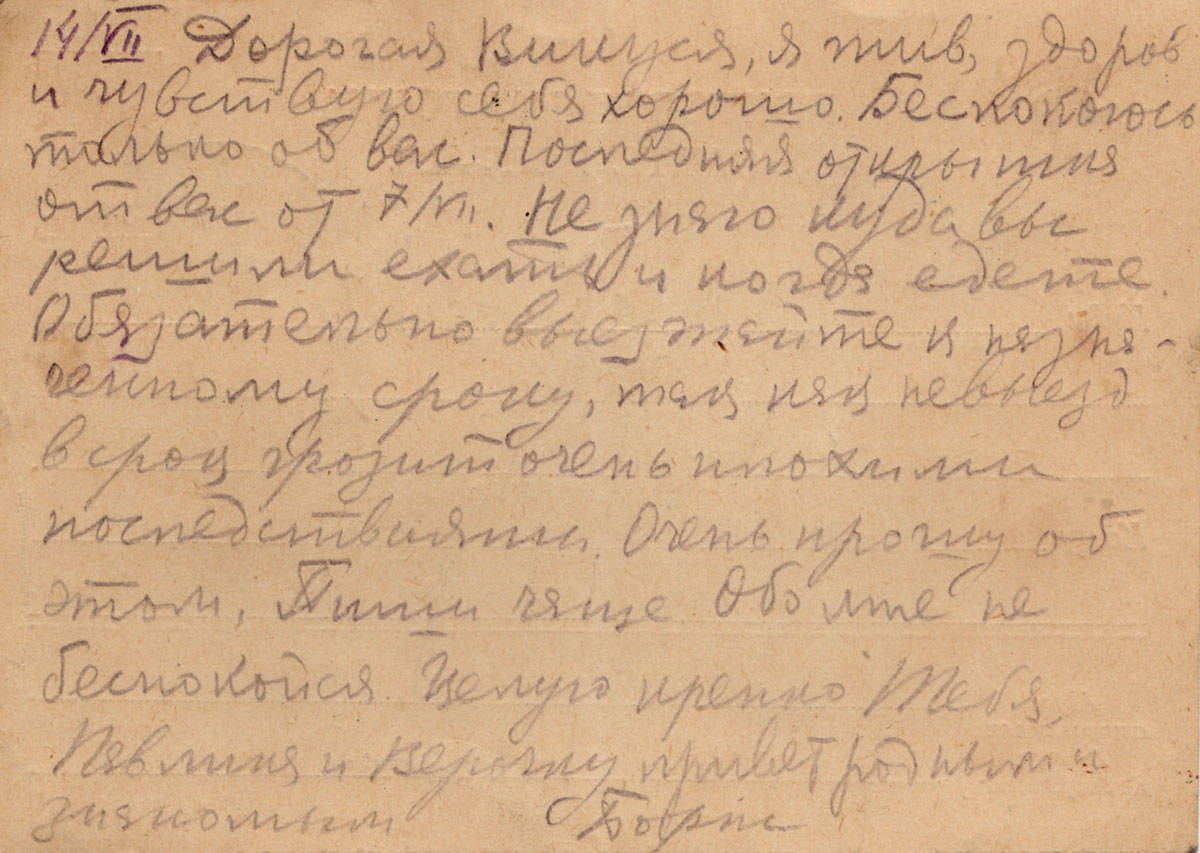 14/VII Дорогая Кинуся, я жив, здоров
и чувствую себя хорошо. Беспокоюсь
только об вас. Последняя открытка
от вас от 7/VII. Не знаю куда вы
решили ехать и когда едете.
Обязательно выезжайте к назна-
ченному сроку, так как невыезд
в срок грозит очень плохими
последствиями. Очень прошу об
этом, Пиши чаще Обо мне не
беспокойся. Целую крепко Тебя,
Павлика и Верочку, привет родным и
знакомым Борис